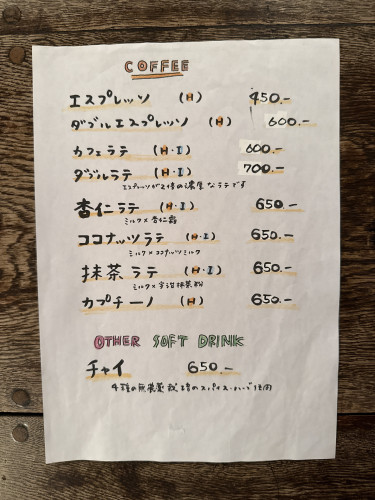 COFFEE
エスプレッソ (H) 450.-
ダブルエスプレッソ (H) 600.-
カフェラテ (H・I) 600.-
ダブルラテ (H・I) 700.-
エスプレッソが2倍の濃厚なラテです
杏仁ラテ (H・I) 650.-
ミルク×杏仁霜
ココナッツラテ (H・I) 650.-
ミルク×ココナッツミルク
抹茶ラテ (H・I) 650.-
ミルク×宇治抹茶
カプチーノ (H) 650.-
OTHER SOFT DRINK
チャイ 650.-
4種の無農薬栽培のスパイス・ハーブ使用